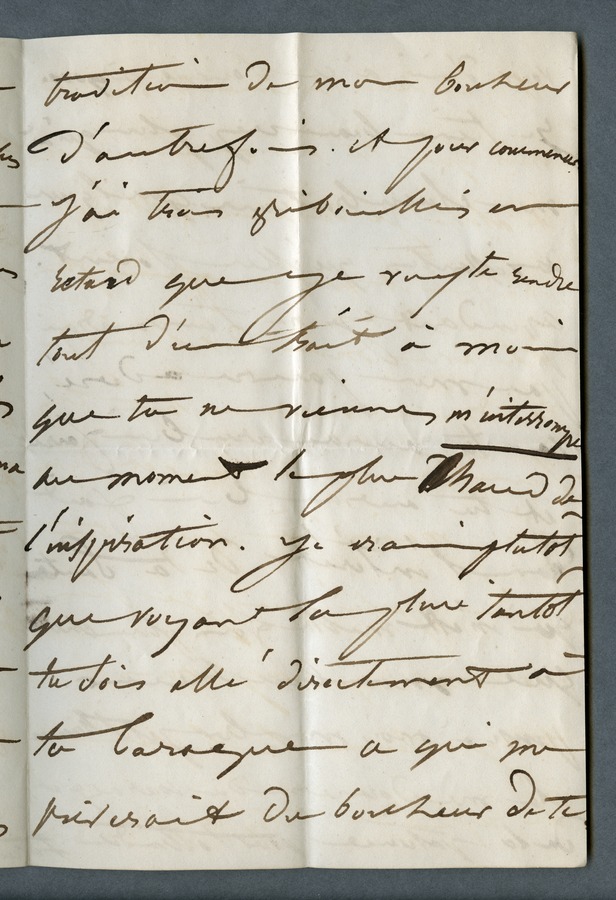 tradition de mon bonheur
d'autrefois. et pour commencer
j'ai trois gribouillis en
retard que je vais te rendre
tout d'un trait à moin
que tu ne viennes m'interrompre
au moment le plus chaud de
l'inspiration. Je crains plutot
que voyant la pluie tantot
tu sois allé directement à
ta baraque a qui me
priverait du bonheur de te